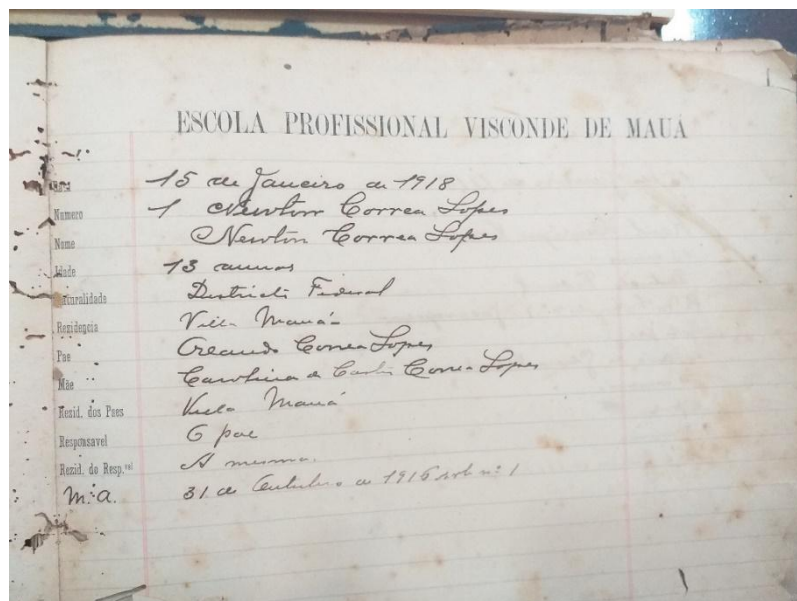 ESCOLA PROFISSIONAL VISCONDE DE MAUÁ
Data 15 de Janeiro de 1918
Numero 1 Newton Correa Lopes
Nome Newton Correa Lopes
Idade 13 annos
Naturalidade Districto Federal
Rezidencia Villa Mauá
Pae Orlando Correa Lopes
Mãe Carolina de Castro Correa Lopes
Rezid. dos Paes Villa Mauá
Responsavel O pae
Rezid. do Resp.vel A mesma.
M. A. 31 de Outubro de 1916 sob nº 1